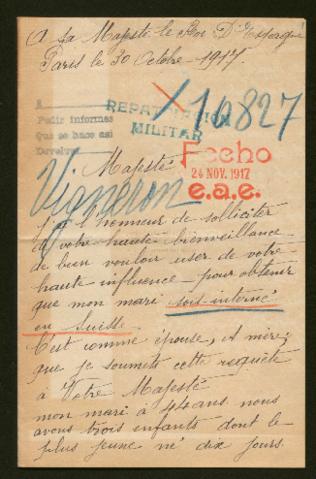 A Sa Majesté le Roi D'Espagne
Paris le 30 Octobre - 1917.
X 16827
A
Pedir informes
Que se hace así
Devolver
REPATRIACION
MILITAR
Fecho
24 NOV. 1917
e.a.e.
Majesté
Vigneron
J'ai l'honneur de solliciter
de votre haute bienveillance
de bien vouloir user de votre
haute influence pour obtenir
que mon mari soit interné
en Suisse
C'est comme épouse, et mère
que je soumets cette requête
à Votre Majesté
mon mari à 44 ans nous
avons trois enfants dont le
plus jeune né dix jours